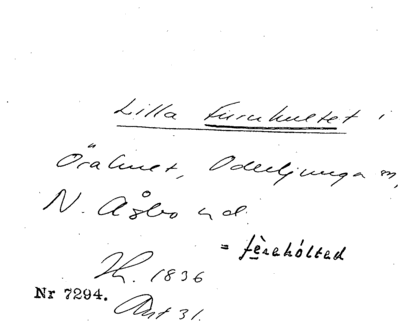 Lilla Furuhultet i
Örahult, Oderljunga sn,
N. Åsbo hd.
= fùrehólted
Th. 1836
Nr 7294. Ant 31.